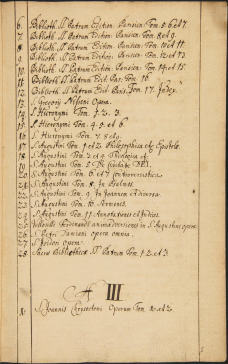 6. Biblioth. SS Patrum Edition. Parisien. Tom. 5. 6 et 7.
7. Biblioth. SS Patrum Edition. Parisien. Tom. 8 et 9.
8. Biblioth. SS Patrum Edition. Parisien. Tom. 10 et 11.
9. Biblioth. SS Patrum Edition. Parisien. Tom. 12 et 13
10. Biblioth. SS Patrum Edition. Parisien. Tom. 14 et 15
11. Biblioth. SS Patrum Edit. Paris. Tom. 16
12. Biblioth. SS Patrum Edit. Paris. Tom. 17.
13. S. Gregorii Nisseni Opera.
14. S. Hieronymi Tom. 1. 2. 3.
15. S. Hieronymi Tom. 4. 5. et 6.
16. S. Hieronymi Tom. 7. 8 et 9.
17. S. Augustini Tom. 1 et 2. Philosophica et Epistolæ.
18. S. Augustini Tom. 3 et 4.
19. S. Augustini Tom. 5
20. S. Augustini Tom. 6. et 7
21. S. Augustini Tom. 8. In Psalmos.
22. S. Augustini Tom. 9. In
23. S. Augustini Tom. 10. Sermones.
24. S. Augustini Tom. 11. Annotationes et Indices.
animadversiones in S. Augustini opera.
26. S. Petri Damiani opera omnia.
27. S. Isidori Opera.
28. Sacræ Bibliothecæ SS Patrum Tom. 1. 2. et 3.
III
1. S. Joannis Chrysostomi Operum Tom. 1. et 2.